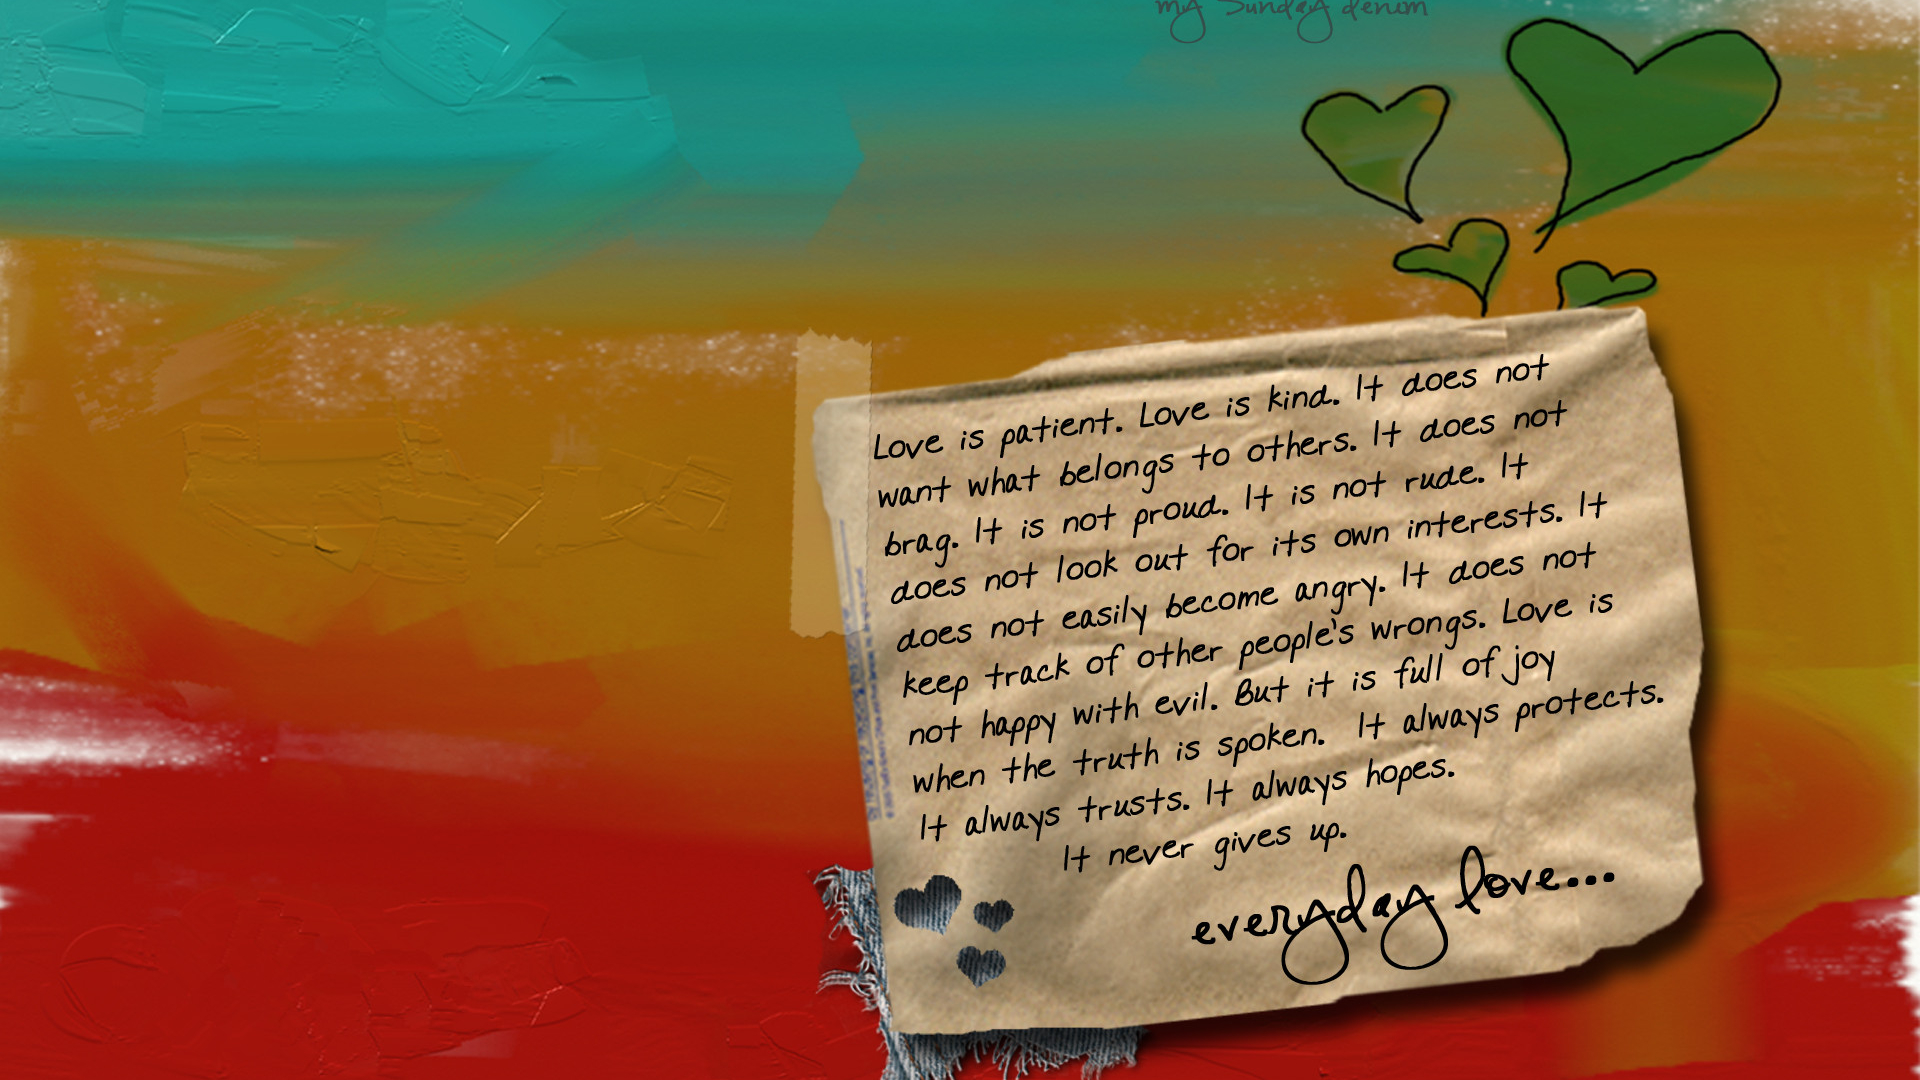 my Sunday denim
Love is patient. Love is kind. It does not
want what belongs to others. It does not
brag. It is not proud. It is not rude. It
does not look out for its own interests. It
does not easily become angry. It does not
keep track of other people's wrongs. Love is
not happy with evil. But it is full of joy
when the truth is spoken. It always protects.
It always trusts. It always hopes.
It never gives up.
everyday love...